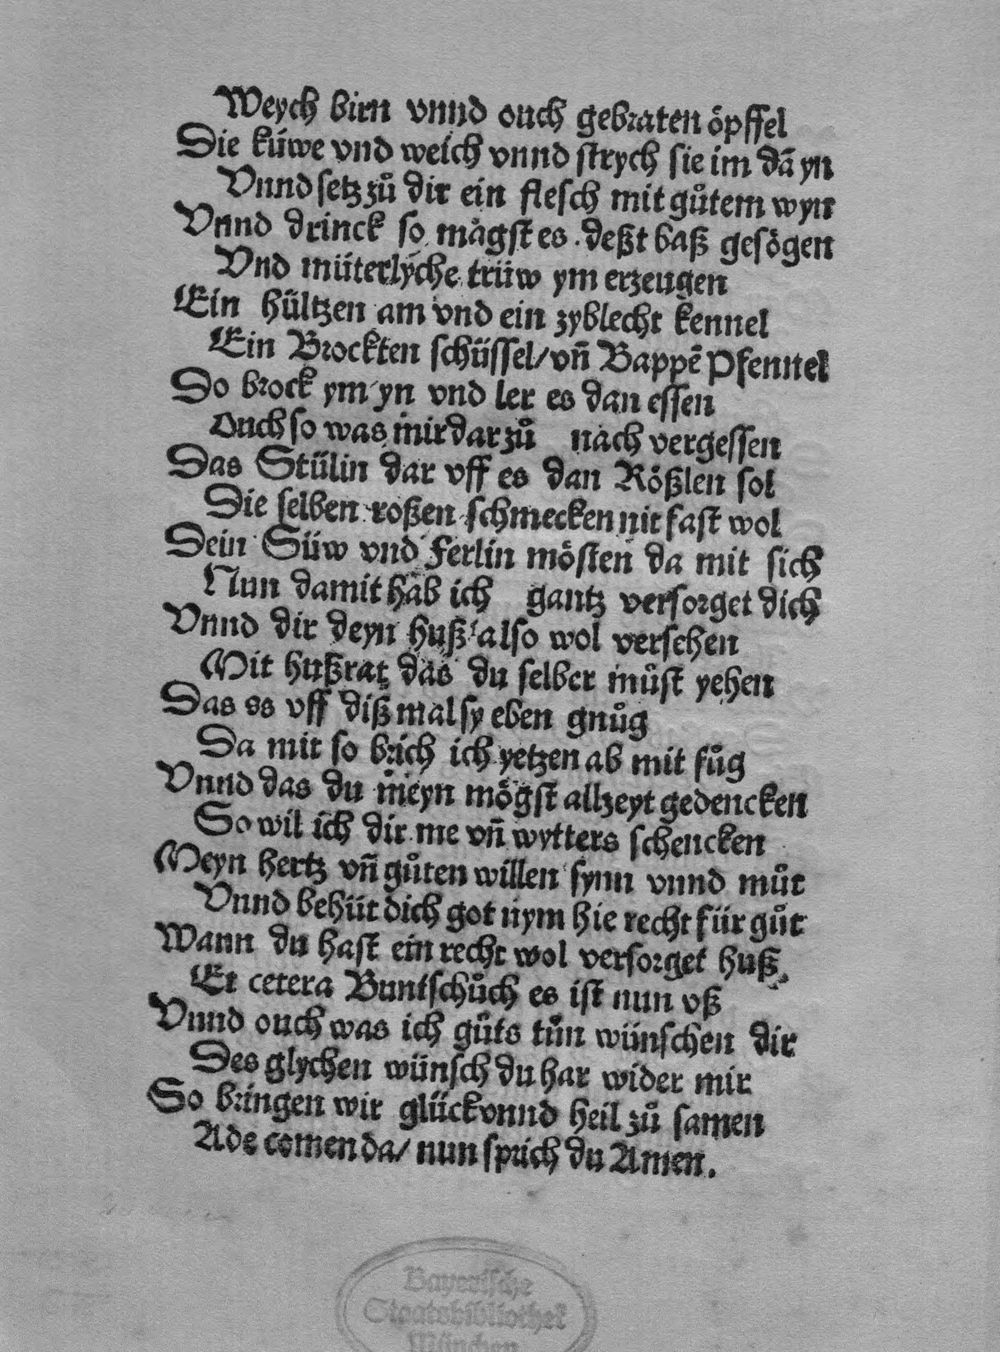 Weych birn vnnd ouch gebraten öpffel
Die küwe vnd weich vnnd strych sie im dā yn
Vnnd setz zů dir ein flesch mit gůtem wyn
Vnnd drinck so magst es deßt baß gesögen
Vnd müterlyche trüw ym erzeugen
Ein hültzen am vnd ein zyblecht kennel
Ein Brockten schüssel/ vn̄ Bappē Pfennel
So brock ym yn vnd ler es dan essen
Ouch so was mir dar zů nach vergessen
Das Stülin dar vff es dan Rößlen sol
Die selben roßen schmecken nit fast wol
Dein Süw vnd Ferlin mösten da mit sich
Nun damit hab ich gantz versorget dich
Vnnd dir deyn huß also wol versehen
Mit hußrat das du selber můst yehen
Das es vff diß mal sy eben gnůg
Da mit so brich ich yetzen ab mit fůg
Vnnd das du meyn mögst allzeyt gedencken
So wil ich dir me vn̄ wytters schencken
Meyn hertz vn̄ gůten willen synn vnnd můt
Vnnd behüt dich got nym hie recht für gůt
Wann du hast ein recht wol versorget huß
Et cetera Buntschůch es ist nun vß
Vnnd ouch was ich gůts tůn wünschen dir
Des glychen wünsch du har wider mir
So bringen wir glück vnnd heil zů samen
Ade comen da/ nun sprich du Amen.
Bayerische
Staatsbibliothek
München